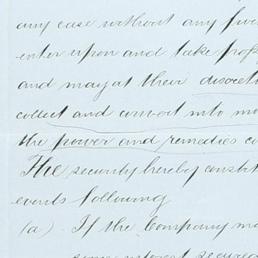 any case without any
enter upon and take
and may at their discreti
collect and convert into mo
the power and remedies co
The security hereby constit
events following
(a). If the Company ma